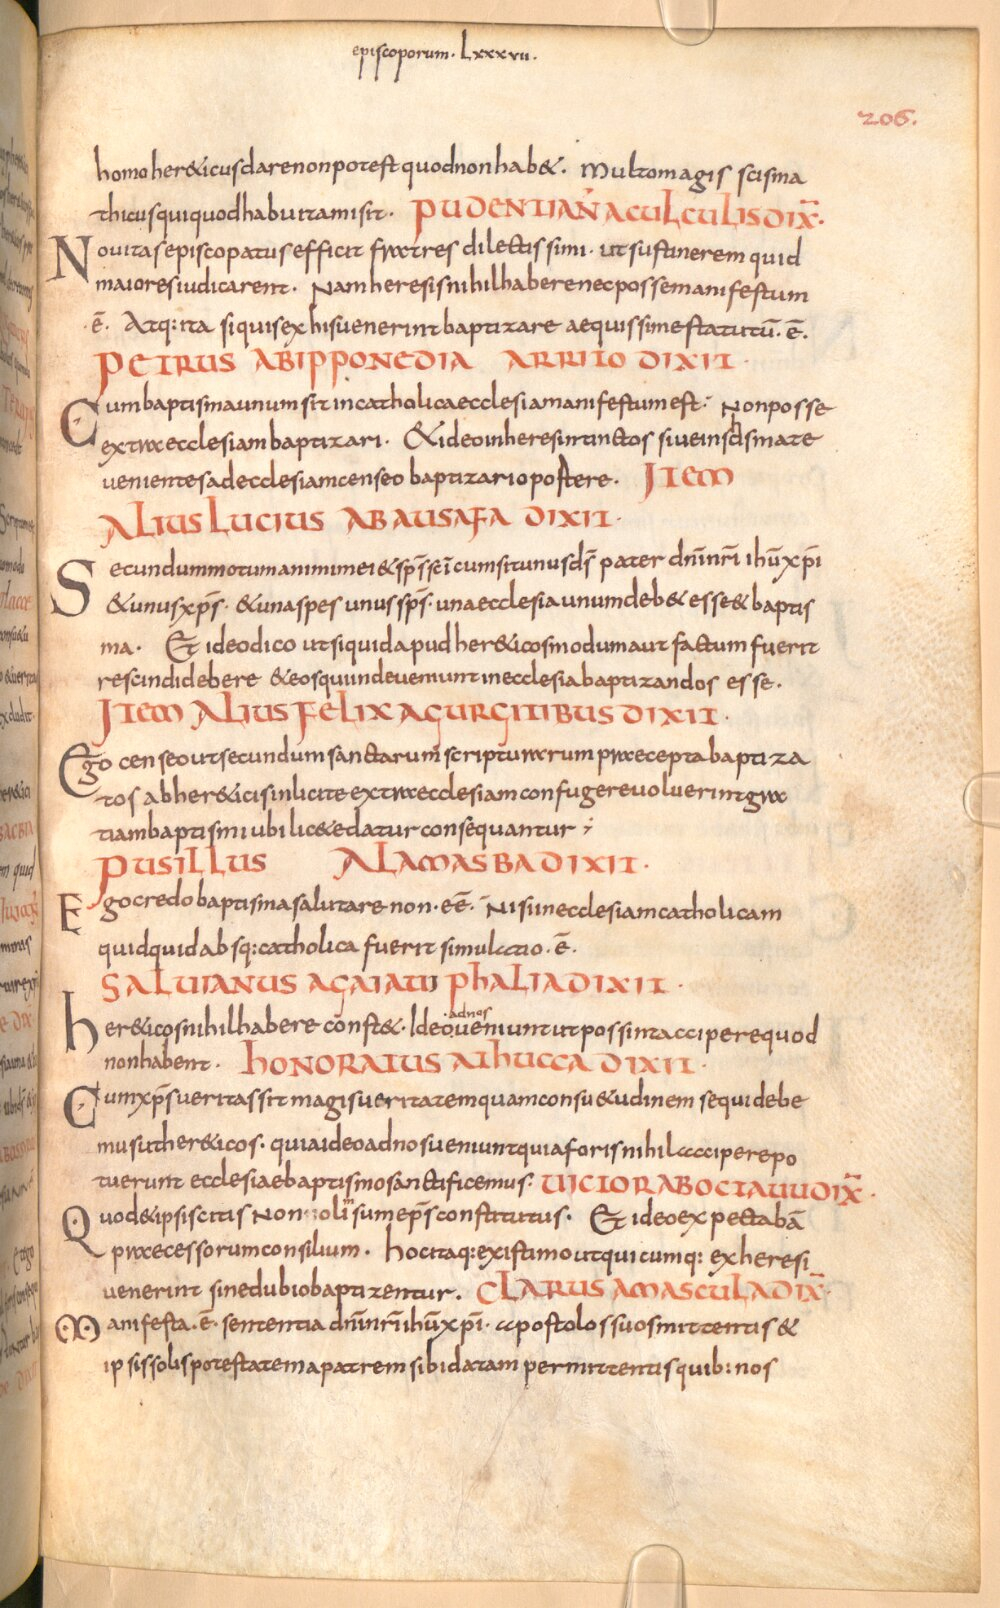 episcoporum · Lxxxvii ·
206.
homo her&icus dare non potest quod non hab& · Multo magis scisma
thicus qui quod habuit amisit · PUDENTIAN̄ A CULCULIS DIX̄ ·
Nouitas episcopatus efficit fratres dilectissimi · ut sustinerem quid
maiores iudicarent · Nam heresis nihil habere nec posse manifestum
· ē · Atq: ita si quis ex his uenerint baptizare aequissime statutū · ē ·
PETRUS ABIPPONE DIA ARRITO DIXIT ·
Cum baptisma unum sit in catholica ecclesia manifestum est · Non posse
extra ecclesiam baptizari · &ideo in heresi intinctos siue in scismate
uenientes ad ecclesiam censeo baptizari opostere · ITEM
ALIUS LUCIUS AB AUSAFA DIXIT ·
Secundum motum animi mei & sp̄s sc̄i cum sit unus d̄s pater dn̄i nr̄i ihū xp̄i
& unus xp̄s · & una spes unus sp̄s · una ecclesia unum deb& esse & baptis
ma · Et ideo dico ut si quid apud her&icos modum aut factum fuerit
rescindi debere & eos qui inde ueniunt in ecclesia baptizandos esse ·
ITEM ALIUS FELIX A GURGITIBUS DIXIT ·
Ego censeo ut secundum sanctarum scripturarum praecepta baptiza
tos ab her&icis inlicite extra ecclesiam confugere uoluerint gra
tiam baptismi ubi lic&e datur consequantur ;
PUSILLUS A LAMASBA DIXIT ·
Ego credo baptisma salutare non · eē · Nisi in ecclesiam catholicam
quidquid absq: catholica fuerit simulatio · ē ·
SALUIANUS A GAIATU PHALIA DIXIT ·
her&icos nihil habere const& · Ideo ad nos ueniunt ut possint accipere quod
non habent · HONORATUS A THUCCA DIXIT ·
Cum xp̄s ueritas sit magis ueritatem quam consu&udinem sequi debe
mus ut her&icos · quia ideo ad nos ueniunt quia foris nihil accipere po
tuerunt ecclesiae baptismo sanctificemus · UICTOR AB OCTAUU DIX̄ ·
Quod & ipsi scitis Non olim sum ep̄s constitutus · Et ideo expectabā
praecessorum consilium · hoc itaq: existimo ut quicumq: ex heresi
uenerint sine dubio baptizentur · CLARUS A MASCULA DIX̄ ·
Manifesta · ē · sententia dn̄i nr̄i ihū xp̄i · apostolos suos mittentis &
ipsis solis potestatem a patrem sibi datam permittentis quib: nos